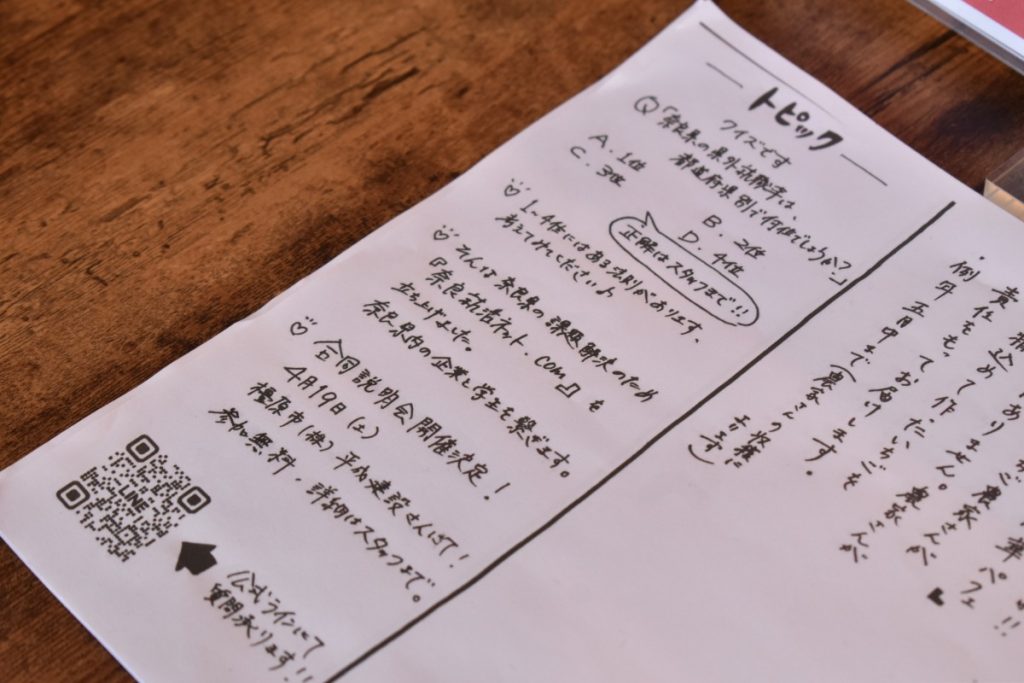 トピック
クイズです
Q「奈良県の県外就職率は、
都道府県別で何位でしょうか？」
A. 1位
B. 2位
C. 3位
D. 4位
正解はスタッフまで!!
1~4位にはある法則があります、
考えてみてください♪
そんな奈良県の課題解決のため
『奈良就活ネット.com』を
立ち上げました。
奈良県内の企業と学生を繋ぎます。
合同説明会開催決定！
4月19日(土)
橿原市(株)平成建設さんにて!
参加無料・詳細はスタッフまで。
LINE
公式ラインにて
質問承ります!!
パフェ
農家さんが
込めてありません。
責任をもって作ったいちごを
農家さんが
・例年五月中までお届けします。
(農家さんの収穫に